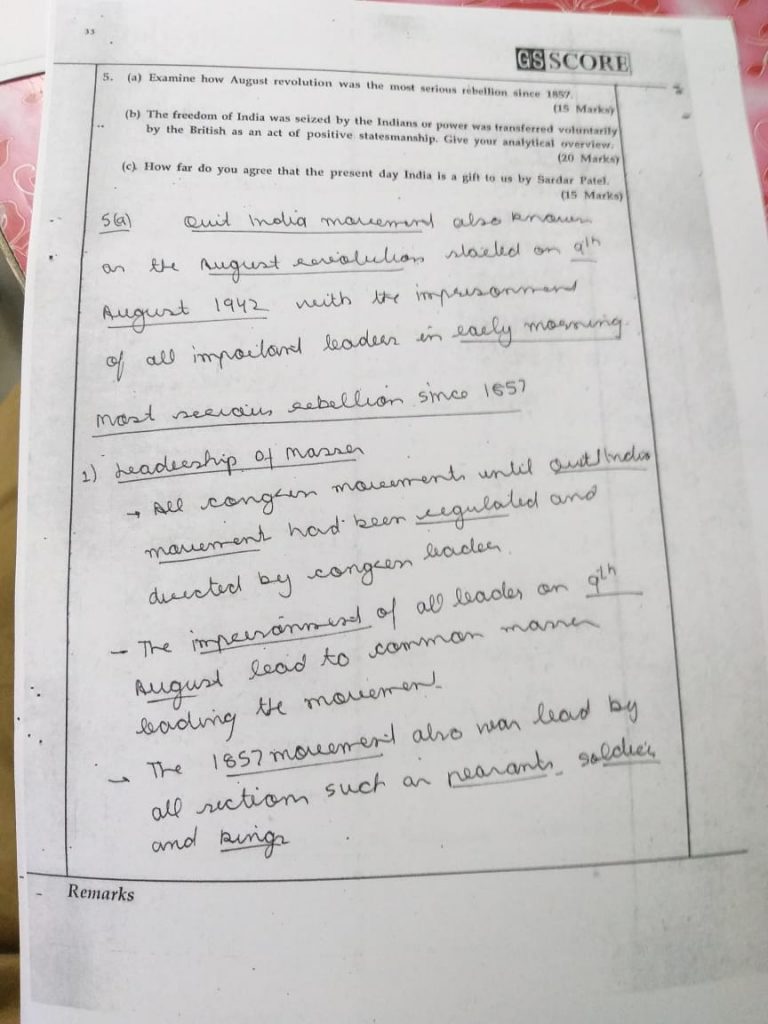 33
GS SCORE
5. (a) Examine how August revolution was the most serious rebellion since 1857.
(15 Marks)
(b) The freedom of India was seized by the Indians or power was transferred voluntarily
by the British as an act of positive statesmanship. Give your analytical overview.
(20 Marks)
(c) How far do you agree that the present day India is a gift to us by Sardar Patel.
(15 Marks)
5(a) Quit India movement also known
as the August revolution started on 9th
August 1942 with the imprisonment
of all important leaders in early morning.
Most serious rebellion since 1857
1) Leadership of Masses
→ All congress movements until Quit India
movement had been regulated and
directed by congress leader.
- The imprisonment of all leaders on 9th
August lead to common masses
leading the movement.
→ The 1857 movement also was lead by
all sections such as peasants, soldiers
and kings
Remarks